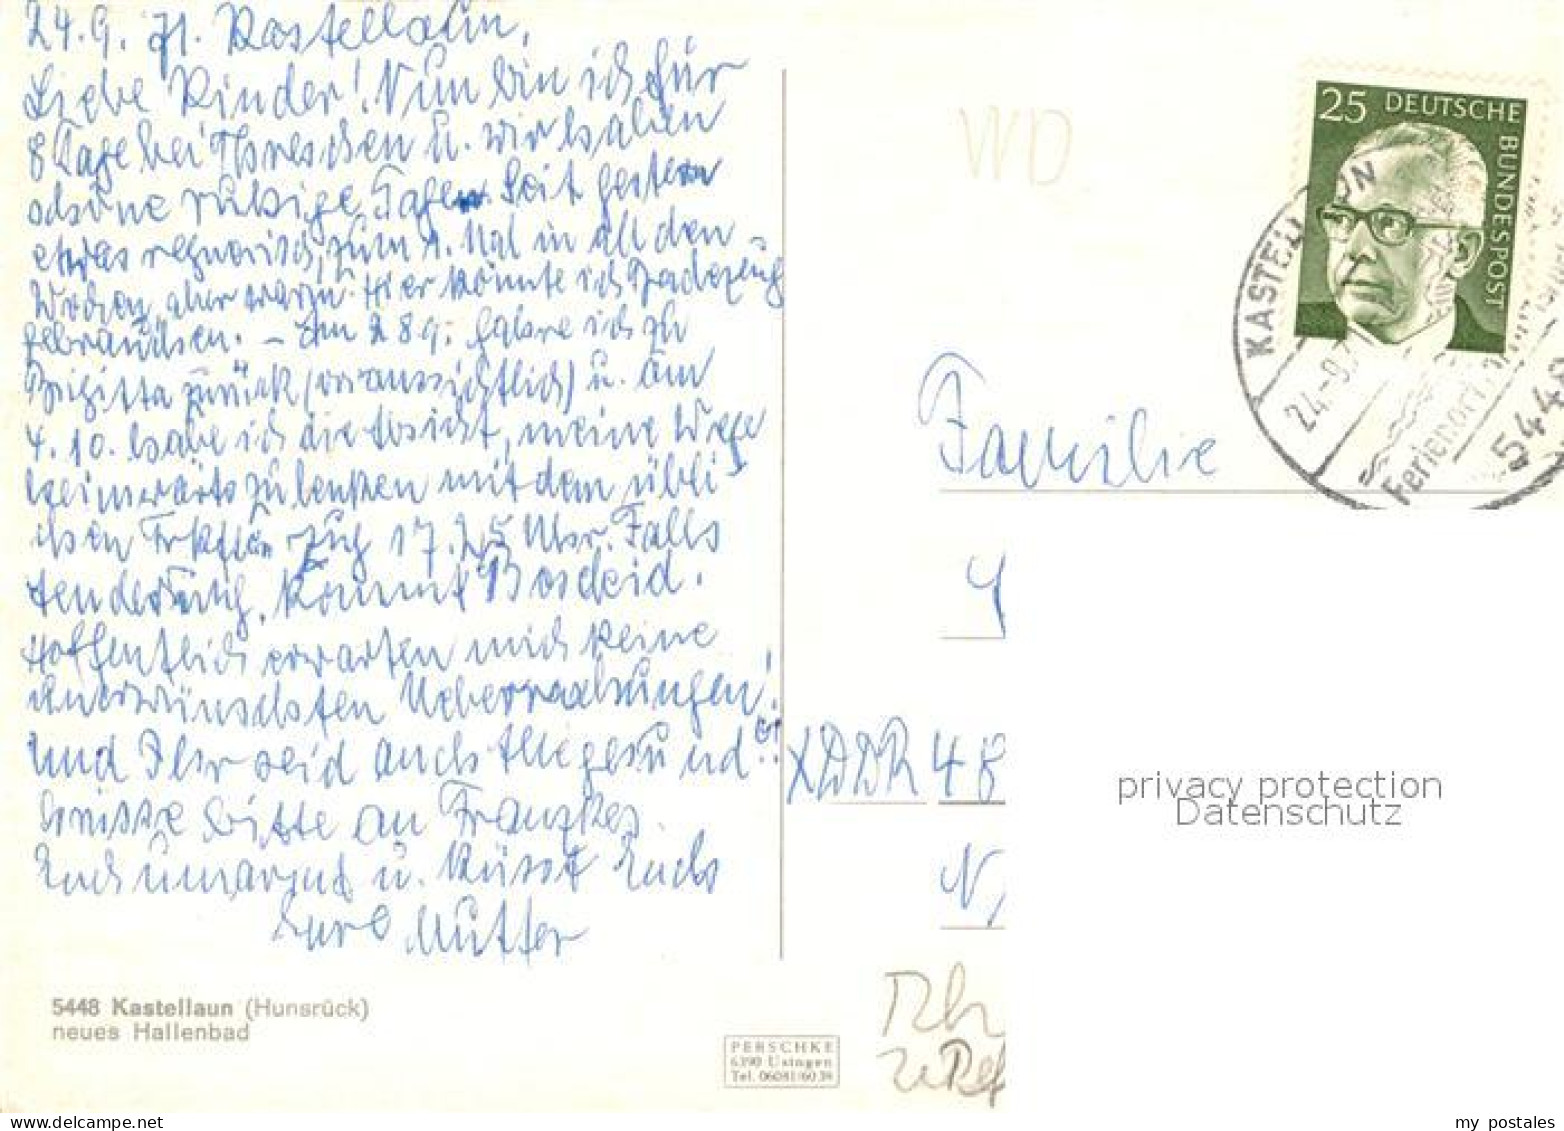 24.9.71. Kastellaun.
Liebe Kinder! Nun bin ich für
8 Tage bei Thereschen u. wir haben
schöne ruhige Tage. Seit gestern
etwas regnerisch, zum 1. Mal in all den
Wochen, aber warm. Hier könnte ich Badezeug
gebrauchen. – Am 28.9. fahre ich zu
Brigitta zurück (voraussichtlich) u. am
4.10. habe ich die Absicht, meine Wege
heimwärts zu lenken mit dem übli-
chen Zug 17.25 Uhr. Falls
Aenderung, kommt Bescheid.
Hoffentlich erwarten mich keine
unerwünschten Ueberraschungen!
und Ihr seid auch alle gesund!
Grüsse bitte an Franzkes.
Euch umarmt u. küsst Euch
Eure Mutter
5448 Kastellaun (Hunsrück)
neues Hallenbad
PERSCHKE
6390 Usingen
Tel. 06081/6039
WD
25 DEUTSCHE BUNDESPOST
KASTELLAUN
24.-9.7
Ferienort
5448
Familie
XDDR 48
N
privacy protection
Datenschutz
my postales